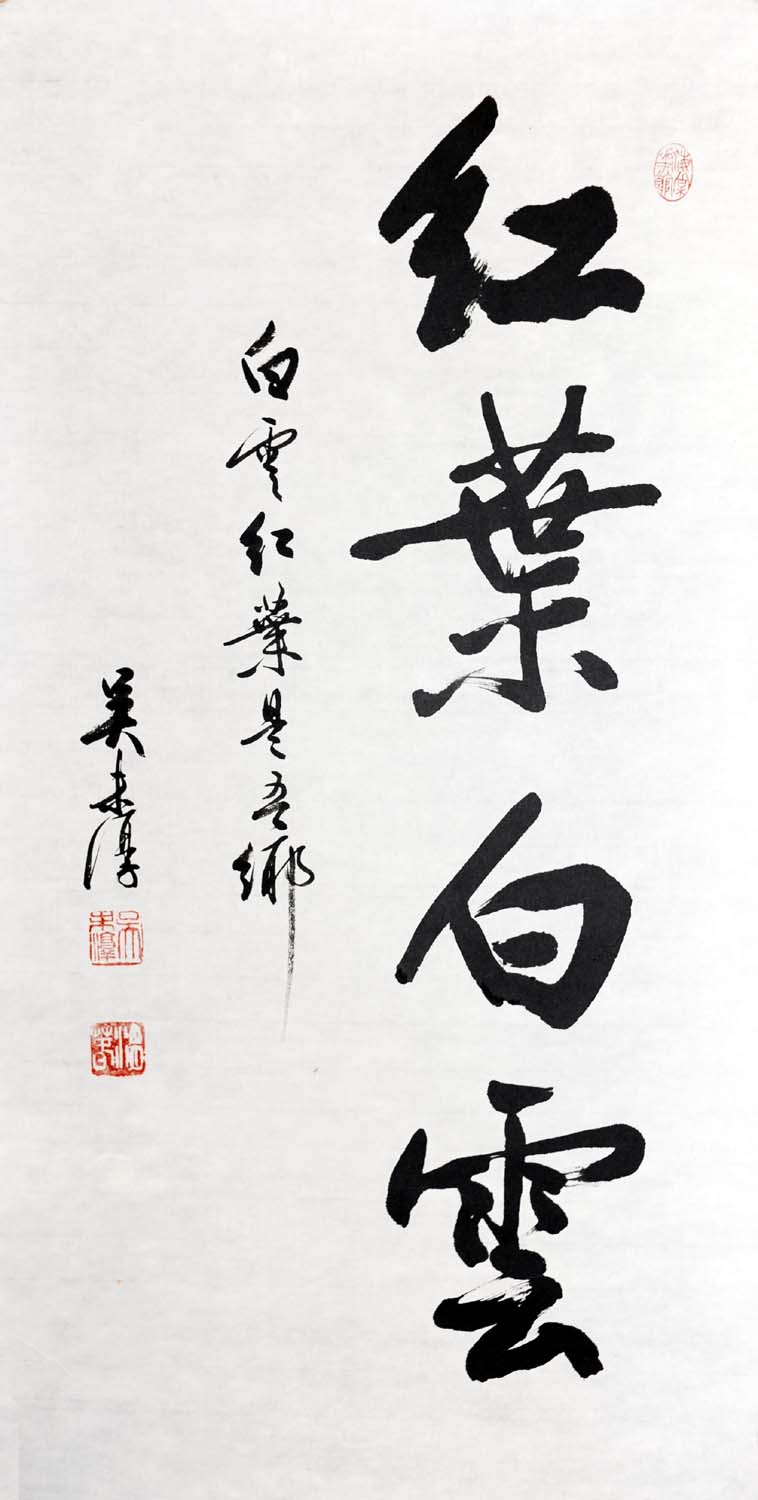 紅葉白雲
白雲紅葉是吾鄉
吳未淳
吳未淳